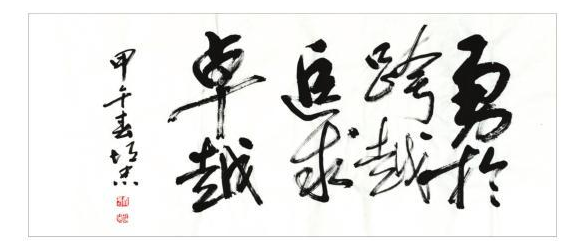 勇於
跨越
追求
卓越
甲午春